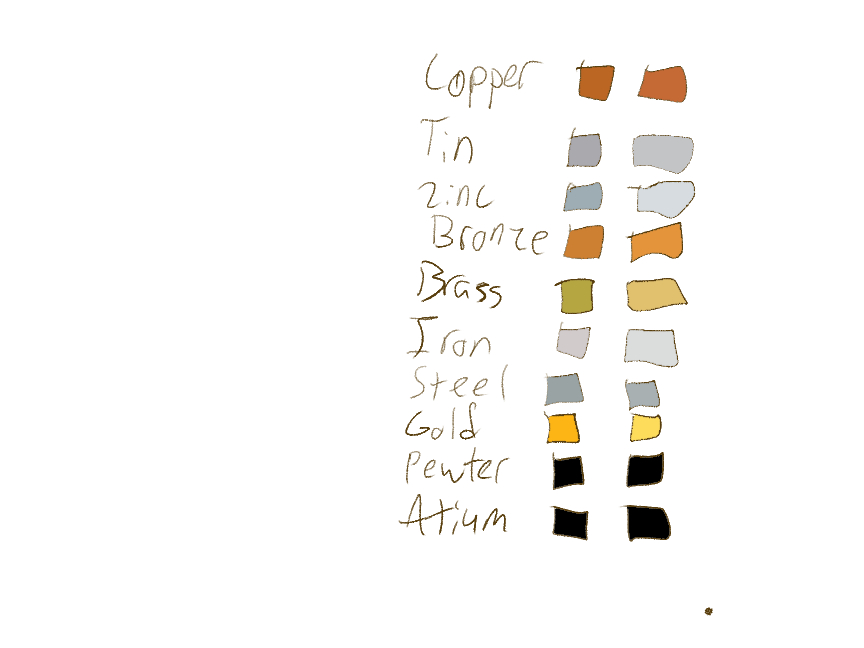 Copper
Tin
Zinc
Bronze
Brass
Iron
Steel
Gold
Pewter
Atium